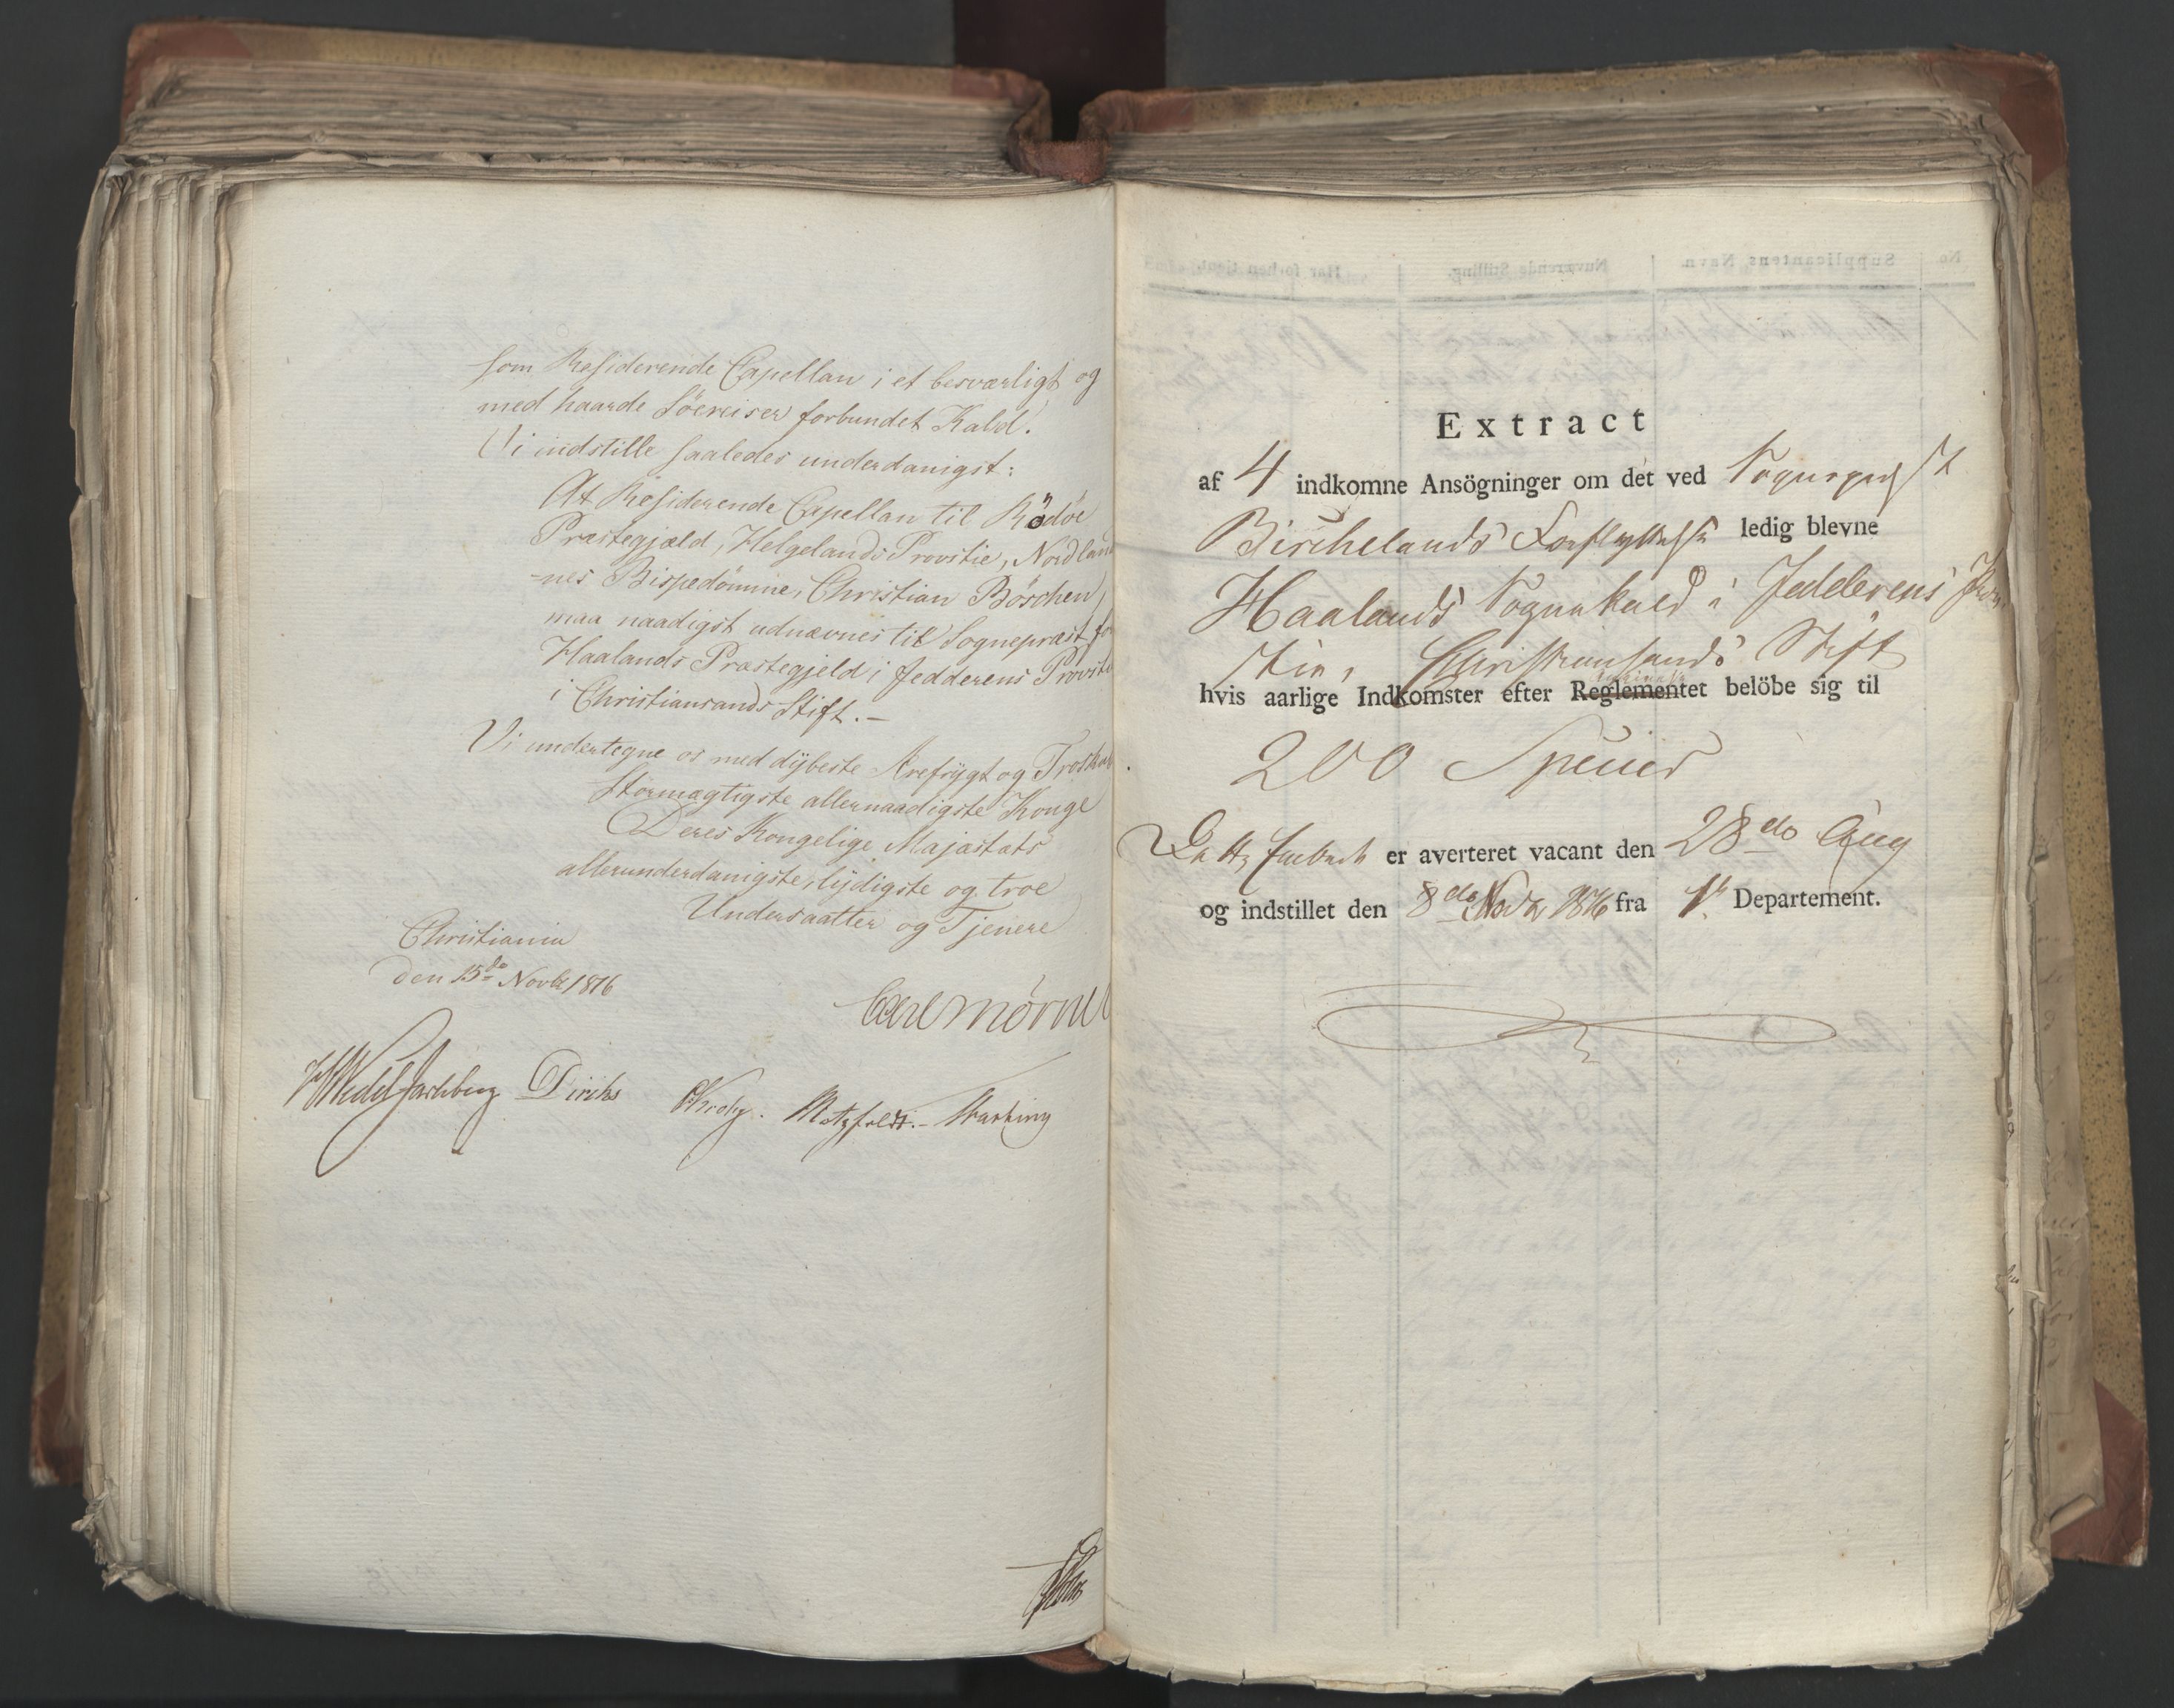 som Residerende Capellan i et besværligt og
med haarde Söereiser forbundet Kald.
Vi indstille saaledes underdanigst:
At Residerende Capellan til Rödöe
Præstegjæld, Helgelands Provstie, Nordland
-nes Bispedömme, Christian Böschen,
maa naadigst udnævnes til Sognepræst for
Haalands Præstegjeld i Jedderens Provstie
i Christiansands Stift. -
Vi undertegne os med dÿbeste Ærefrÿgt og Troskab
Stormægtigste allernaadigste Konge
Deres Kongelige Majæstæts
allerunderdanigste, lÿdigste og troe
Undersaatter og Tjenere
Christiania
den 15de Novbr 1816
Carl Mörner
HWedel Jarlsberg Diriks Krohg. Motzfeldt. -
Extract
af 4 indkomne Ansögninger om det ved Sognepræst
Birchelands Forflyttelse ledig blevne
Haalands Sognekald i Jedderens Prov
stie, Christiansands Stift
hvis aarlige Indkomster efter Reglementet belöbe sig til
200 Specier
Dette Embede er averteret vacant den 28de Aug
og indstillet den 8de Novbr 1816 fra 1st Departement.